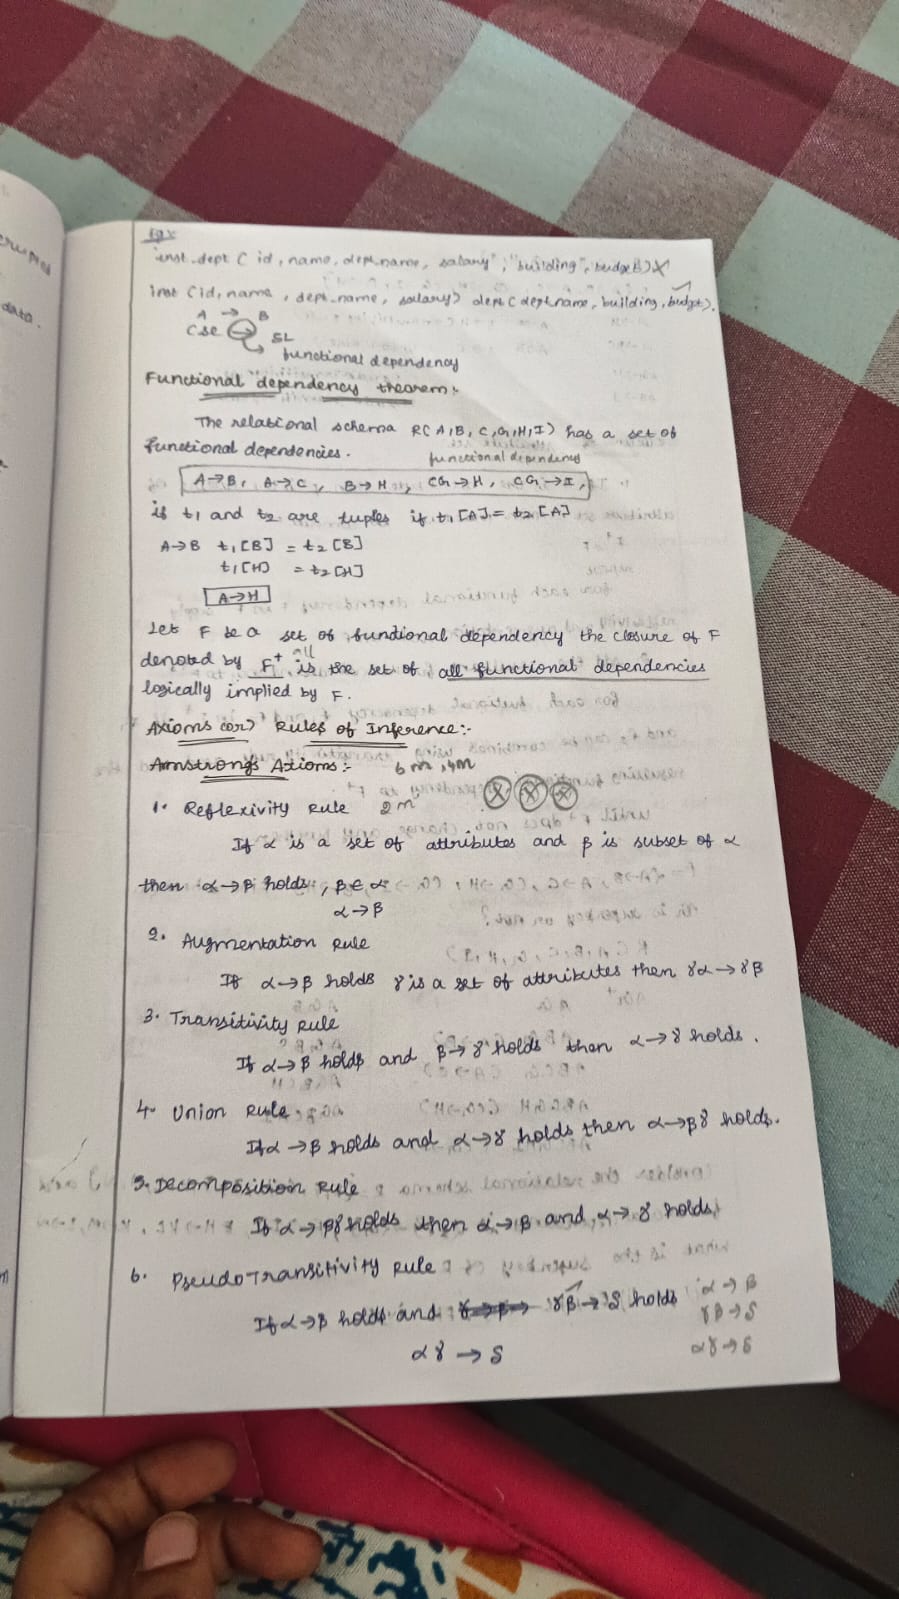 Eg:-
inst_dept ( id, name, dept_name, salary, "building", budget) X
inst (id, name, dept_name, salary) dept (dept name, building, budget).
A → B
CSE → SL
functional dependency
Functional dependency theorem:-
The relational schema R(A,B,C,G,H,I) has a set of
functional dependencies.
functional dependency
A→B, A→C, B→H, CG→H, CG→I,
if t1 and t2 are tuples if t1[A] = t2[A]
A→B t1[B] = t2[B]
t1[H] = t2[H]
A→H
Let F be a set of fundional dependency the closure of F
all
denoted by F+ is the set of all functional dependencies
logically implied by F.
Axioms (or) Rules of Inference:-
Amstrongs Axioms:- 6m, 4m
1. Reflexivity Rule 2m
If α is a set of attributes and β is subset of α
then α→β holds, β∈α
α→β
2. Augmentation Rule
If α→β holds γ is a set of attributes then γα→γβ
3. Transitivity Rule
If α→β holds and β→γ holds then α→γ holds.
4. Union Rule
If α→β holds and α→γ holds then α→βγ holds.
5. Decomposition Rule
If α→βγ holds then α→β and α→γ holds
6. Pseudo Transitivity Rule
If α→β holds and γβ→δ holds
αγ→δ
α→β
γβ→δ
αγ→δ